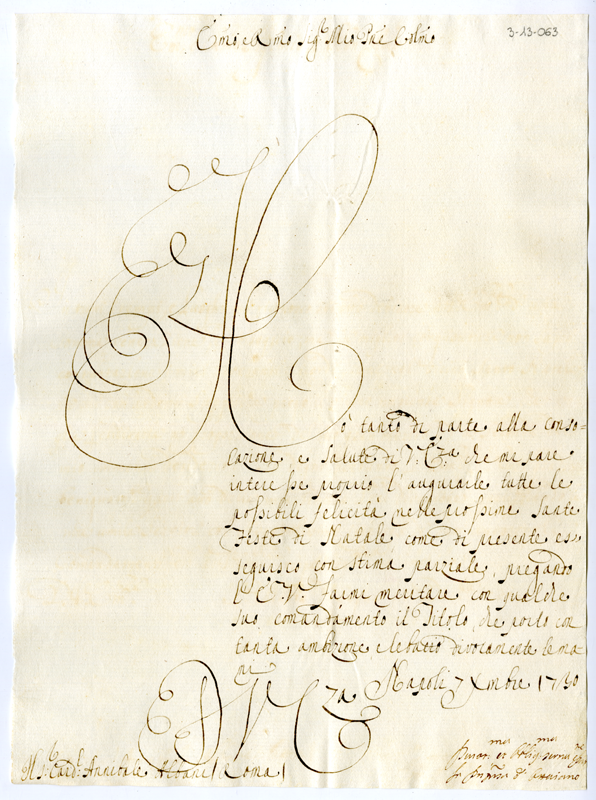 Emo e Rmo Sigr Mio Pne Colmo
3-13-063
Hò tanto di parte alla conso=
lazione, e salute di V: Eza che mi pare
interesse proprio l'augurarle tutte le
possibili felicità nelle prossime Sante
Feste di Natale come di presente es=
seguisco con stima parziale, pregando
l'E: V: farmi meritare con qualche
suo comandamento il Titolo, che porto con
tanta ambizione, e le batio divotamente le ma=
ni
Napoli 7 Xmbre 1730
D V Eza
Sr Card: Annibale Albani (Roma)